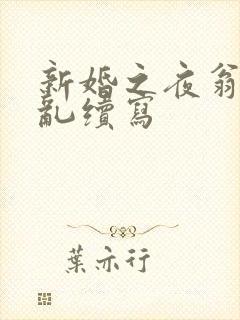 新婚之夜翁
亂續寫
葉亦行